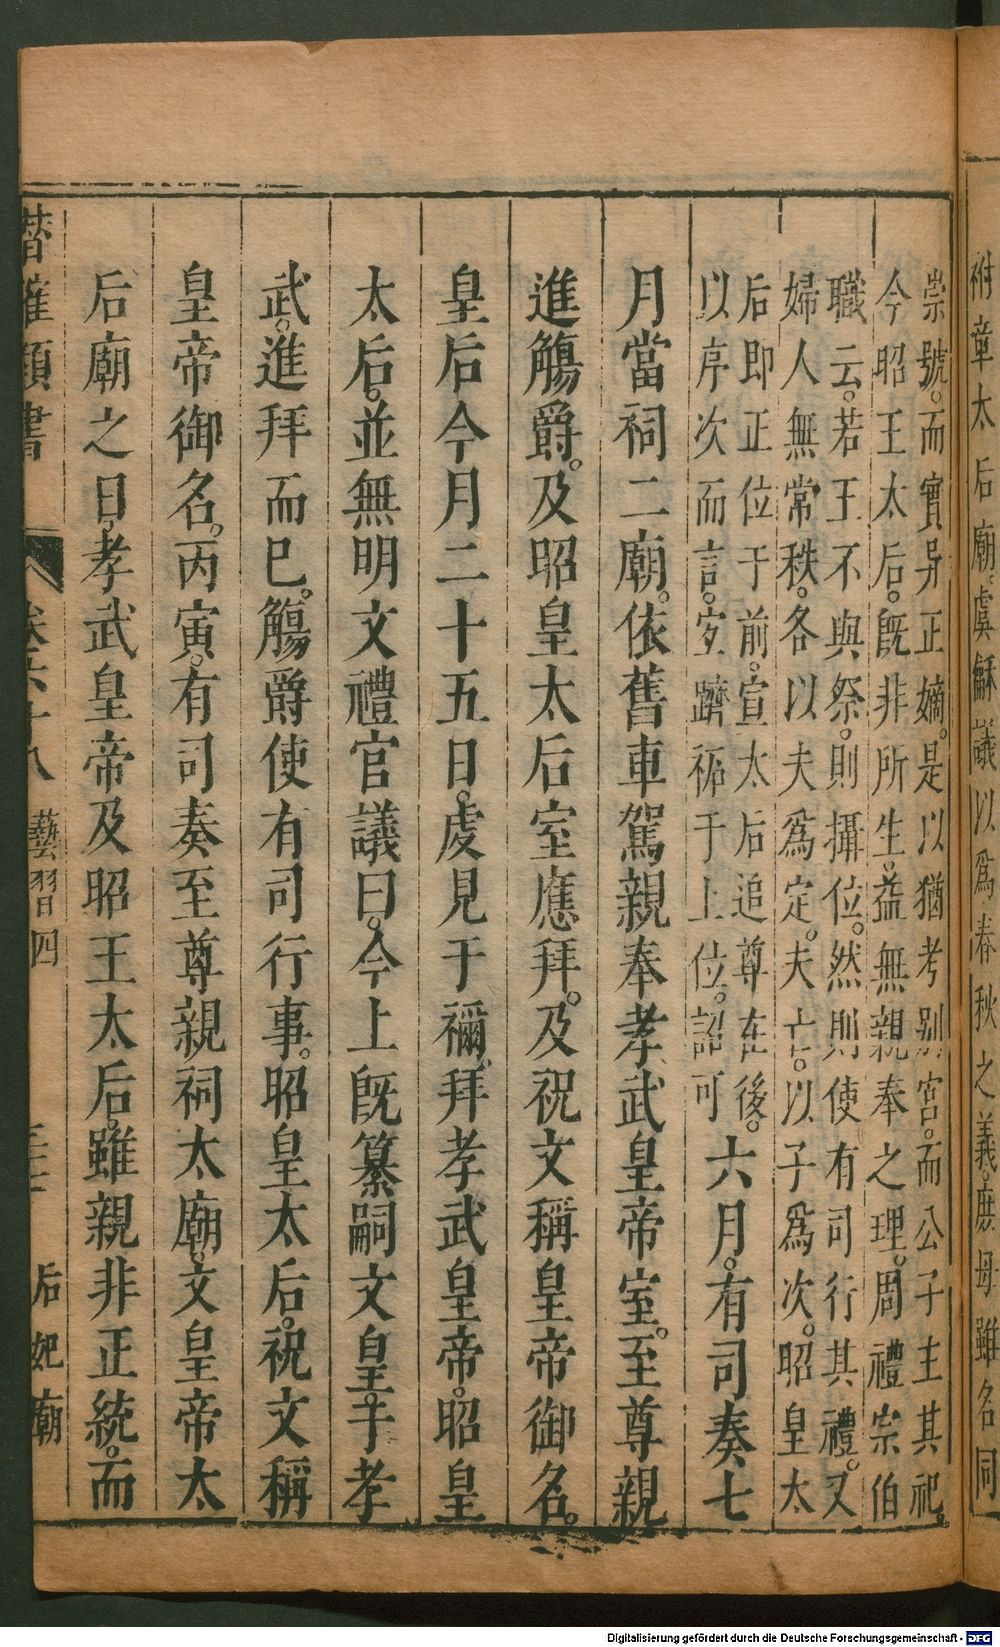 祔章太后廟。虞龢議以爲春秋之義。庶母雖名同
崇號。而實异正嫡。是以猶考别宮。而公子主其祀。
今昭王太后。旣非所生。益無親奉之理。周禮宗伯
職云。若王不與祭。則攝位。然則使有司行其禮。又
婦人無常秩。各以夫爲定。夫亡。以子爲次。昭皇太
后即正位于前。宣太后追尊在後。
以序次而言。宜躋祔于上位。詔可
六月。有司奏七
月當祠二廟。依舊車駕親奉孝武皇帝室。至尊親
進觴爵。及昭皇太后室應拜。及祝文稱皇帝御名。
皇后今月二十五日。虔見于禰。拜孝武皇帝。昭皇
太后。並無明文禮官議曰。今上旣纂嗣文皇。于孝
武。進拜而巳。觴爵使有司行事。昭皇太后。祝文稱
皇帝御名。丙寅。有司奏至尊親祠太廟。文皇帝太
后廟之日。孝武皇帝及昭王太后。雖親非正統。而
潛確類書
卷六十八
藝習四
后妃廟
Digitalisierung gefördert durch die Deutsche Forschungsgemeinschaft - DFG